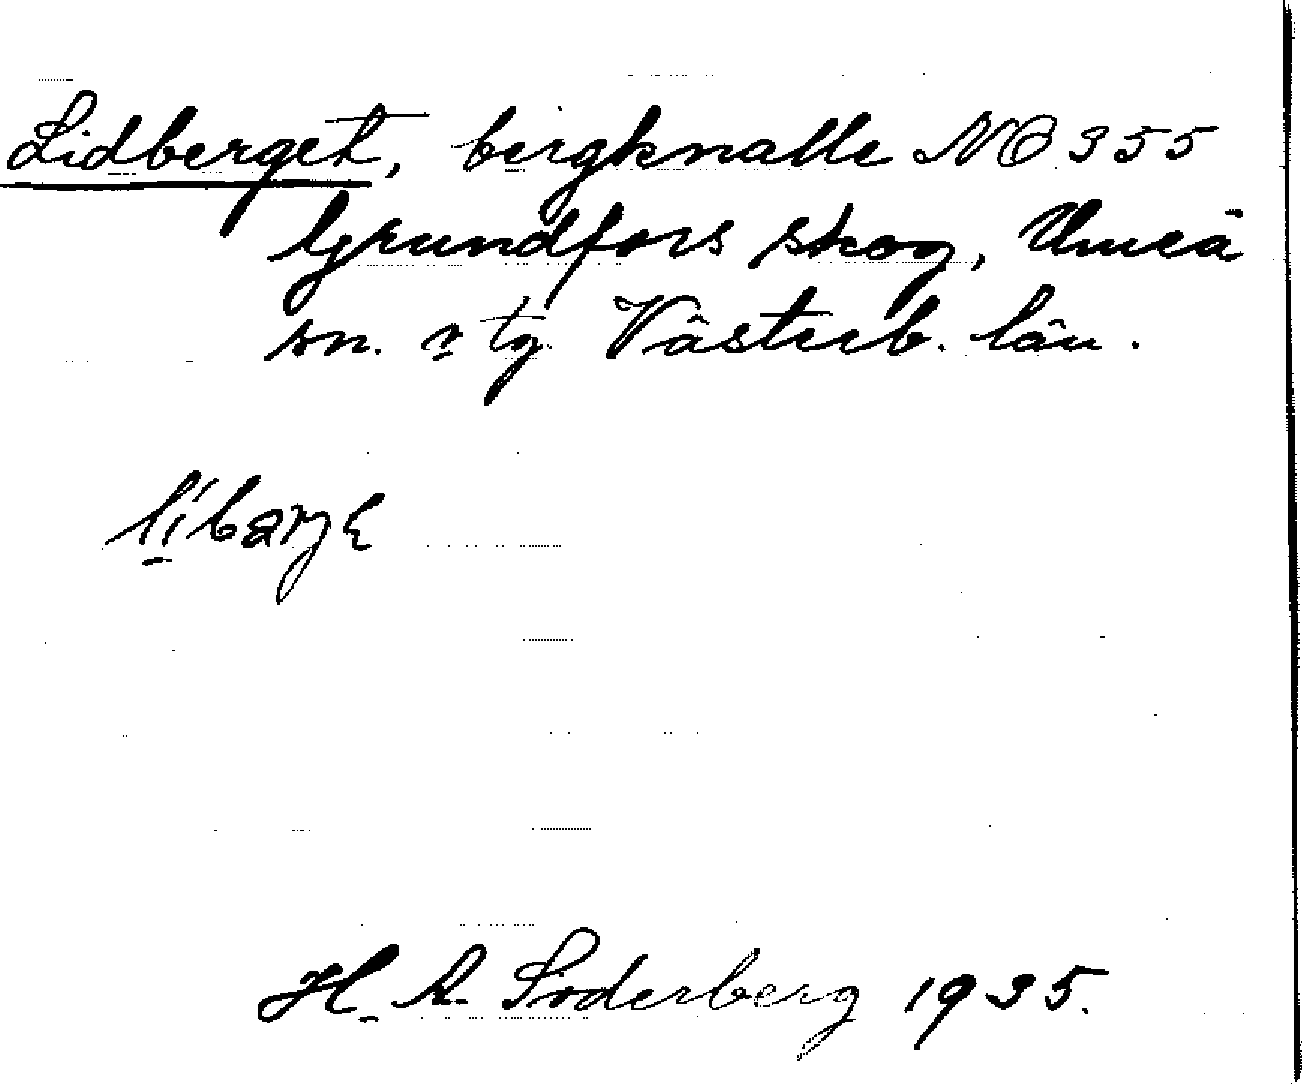 Lidberget, bergknalle NO 355
Grundfors skog, Umeå
sn. o tg Västerb. län.
H. A. Söderberg 1935.